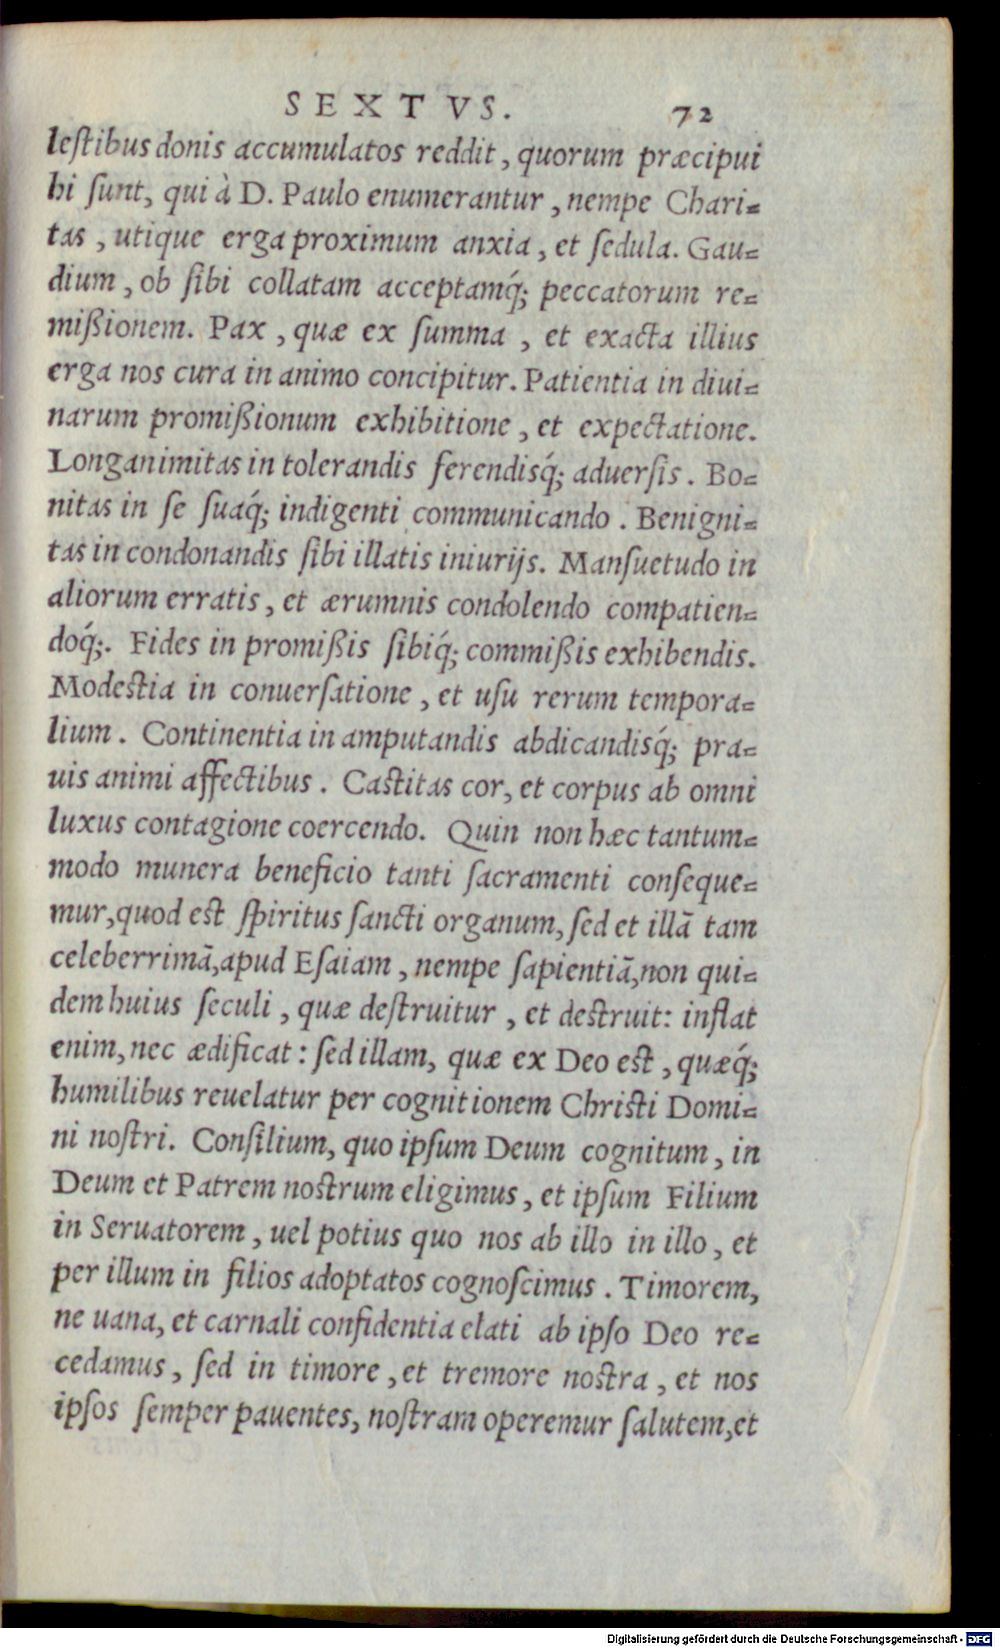 SEXTVS. 72
leſtibus donis accumulatos reddit, quorum præcipui
hi ſunt, qui à D. Paulo enumerantur, nempe Chari=
tas, utique erga proximum anxia, et ſedula. Gau=
dium, ob ſibi collatam acceptamq́; peccatorum re=
mißionem. Pax, quæ ex ſumma, et exacta illius
erga nos cura in animo concipitur. Patientia in diui=
narum promißionum exhibitione, et expectatione.
Longanimitas in tolerandis ferendisq́; aduerſis. Bo=
nitas in ſe ſuaq́; indigenti communicando. Benigni=
tas in condonandis ſibi illatis iniurijs. Manſuetudo in
aliorum erratis, et ærumnis condolendo compatien=
doq́;. Fides in promißis ſibiq́; commißis exhibendis.
Modestia in conuerſatione, et uſu rerum tempora=
lium. Continentia in amputandis abdicandisq́; pra=
uis animi affectibus. Castitas cor, et corpus ab omni
luxus contagione coercendo. Quin non hæc tantum=
modo munera beneficio tanti ſacramenti conſeque=
mur, quod est ſpiritus ſancti organum, ſed et illā tam
celeberrimā, apud Eſaiam, nempe ſapientiā, non qui=
dem huius ſeculi, quæ deſtruitur, et destruit: inflat
enim, nec ædificat: ſed illam, quæ ex Deo est, quæq́;
humilibus reuelatur per cognitionem Christi Domi=
ni noſtri. Conſilium, quo ipſum Deum cognitum, in
Deum et Patrem nostrum eligimus, et ipſum Filium
in Seruatorem, uel potius quo nos ab illo in illo, et
per illum in filios adoptatos cognoſcimus. Timorem,
ne uana, et carnali confidentia elati ab ipſo Deo re=
cedamus, ſed in timore, et tremore nostra, et nos
ipſos ſemper pauentes, noſtram operemur ſalutem, et
Digitalisierung gefördert durch die Deutsche Forschungsgemeinschaft - DFG